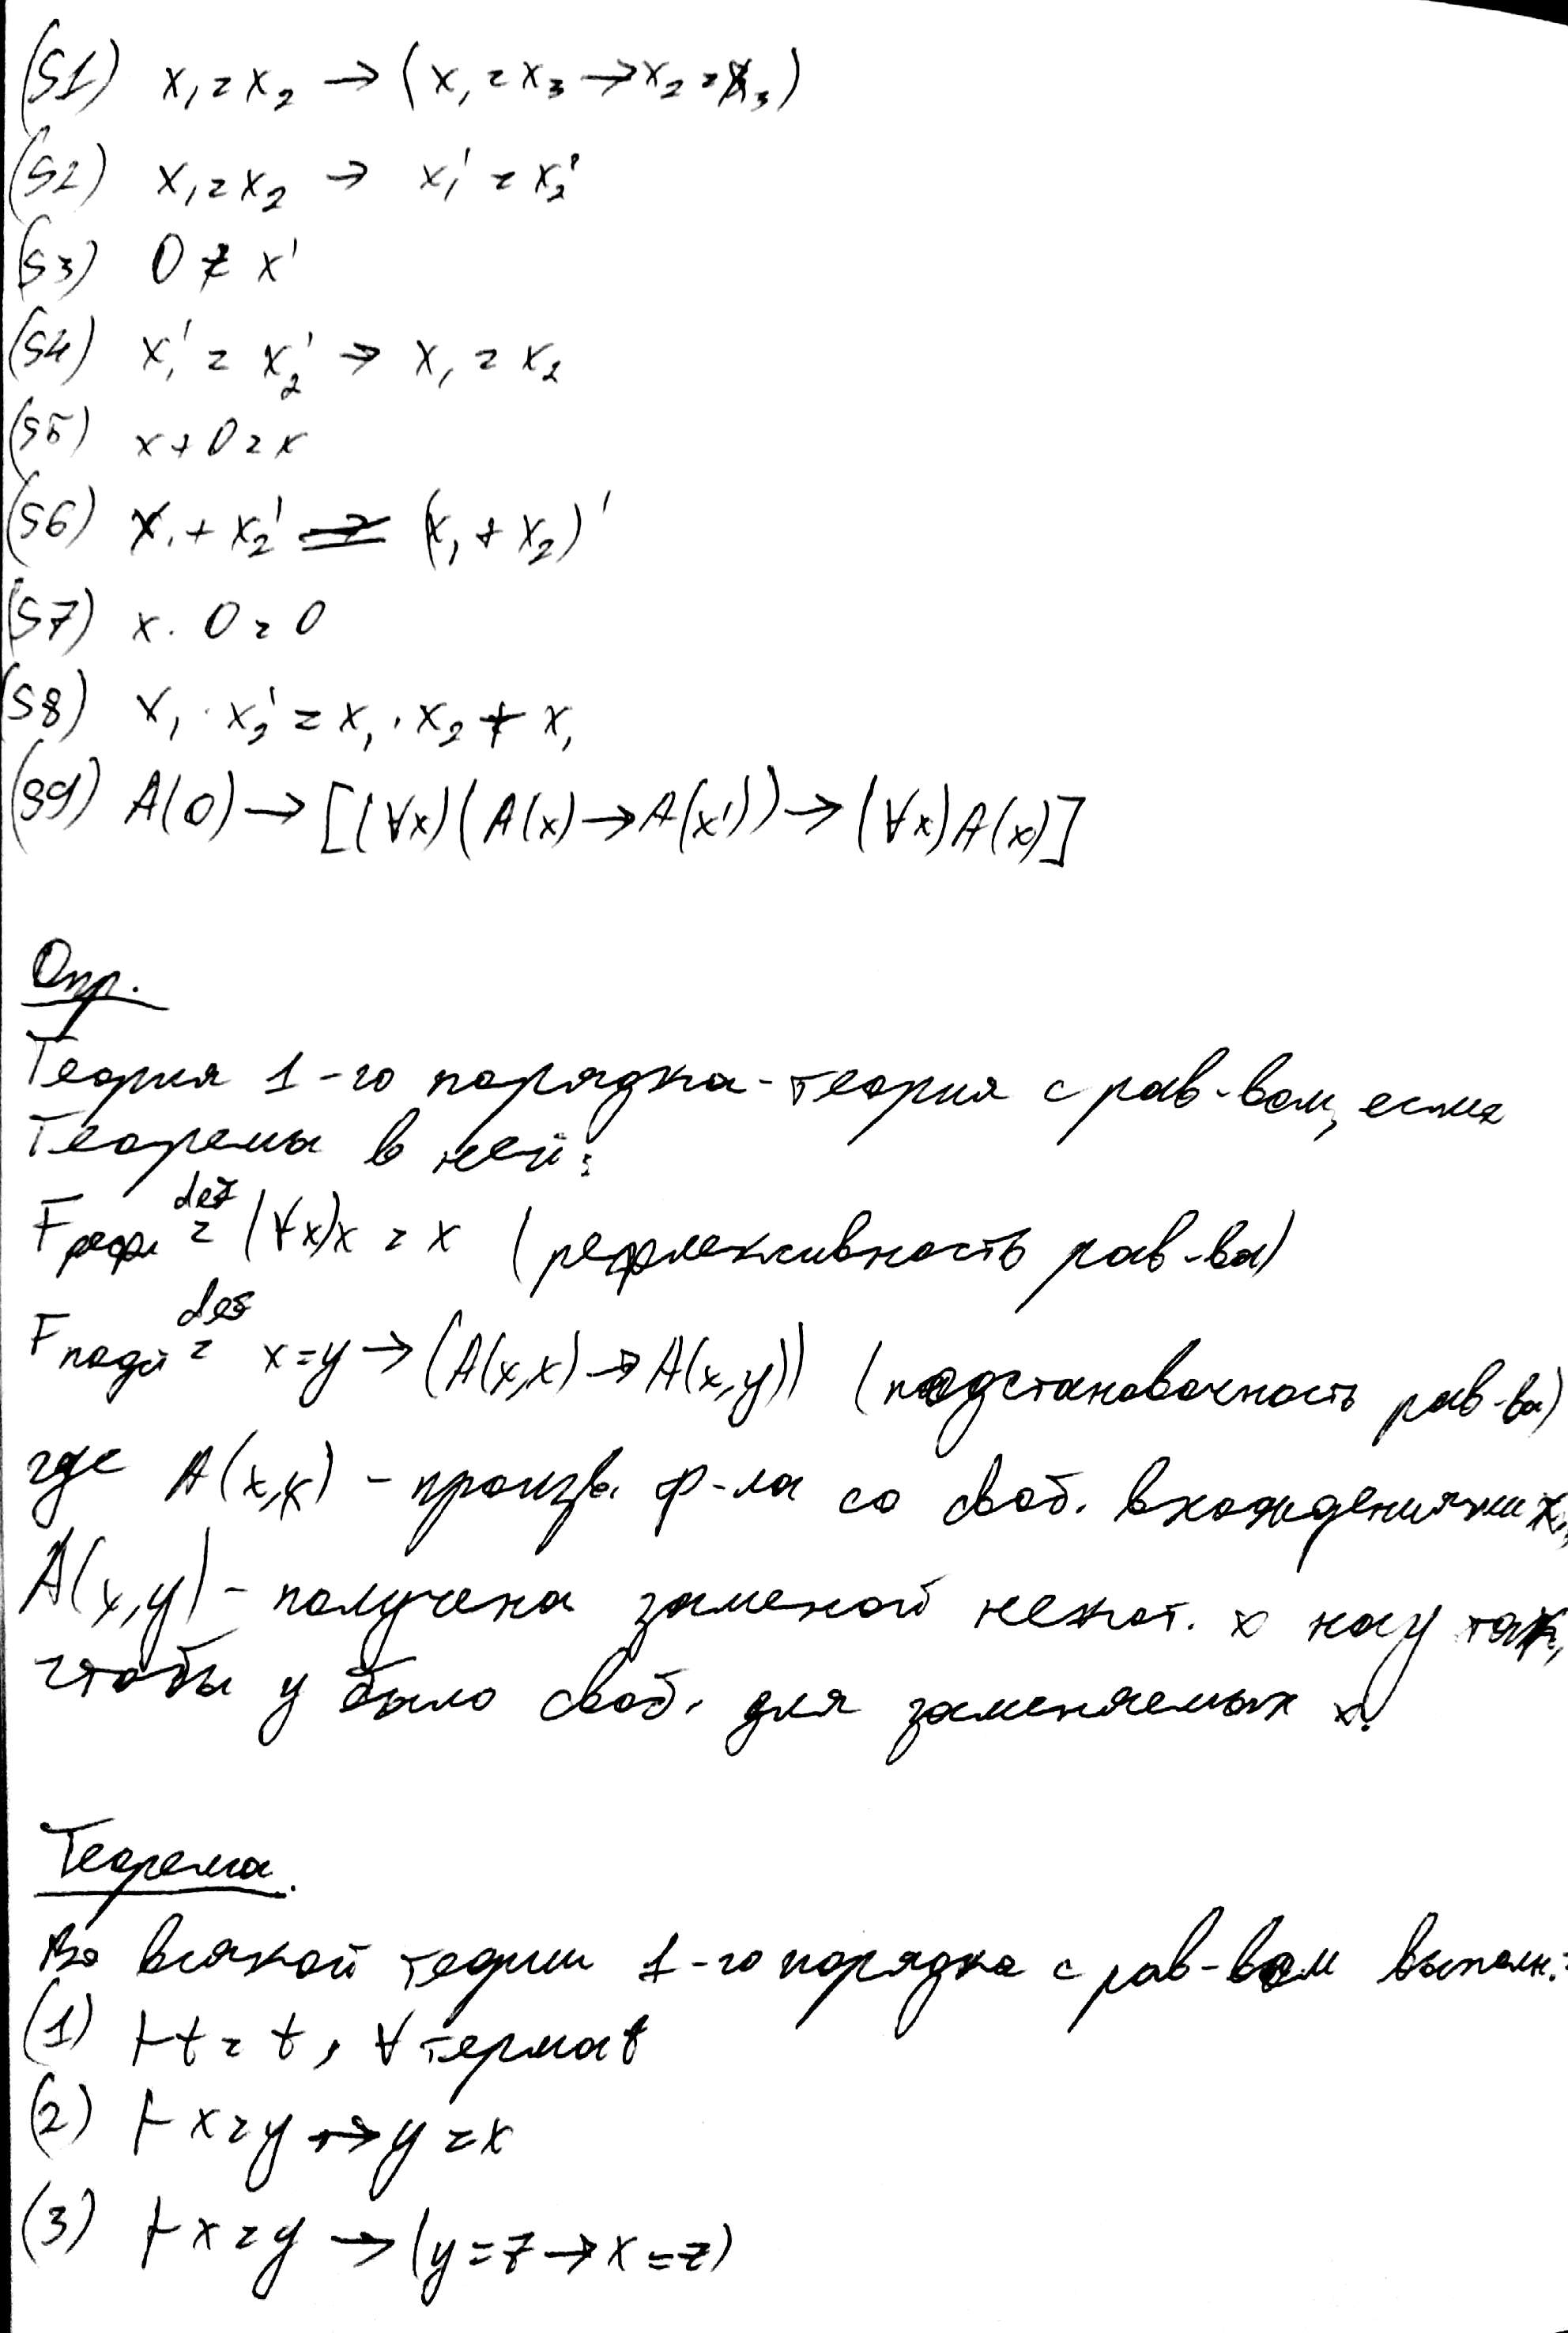 (S1) x₁ = x₂ → (x₁ = x₃ → x₂ = x₃)
(S2) x₁ = x₂ → x₁' = x₂'
(S3) 0 ≠ x'
(S4) x₁' = x₂' → x₁ = x₂
(S5) x + 0 = x
(S6) x₁ + x₂' = (x₁ + x₂)'
(S7) x · 0 = 0
(S8) x₁ · x₂' = x₁ · x₂ + x₁
(S9) A(0) → [(∀x)(A(x) → A(x')) → (∀x)A(x)]
Опр.
Теория 1-го порядка - теория с рав-вом, если
Теоремы в ней:
F рефл def= (∀x)x = x (рефлексивность рав-ва)
F подст def= x = y → (A(x,x) → A(x,y)) (подстановочность рав-ва)
где A(x,x) - произв. ф-ла со своб. вхождениями x,
A(x,y) - получена заменой некот. x на y так,
чтобы y было своб. для заменяемых x.
Теорема.
Во всякой теории 1-го порядка с рав-вом выполн.:
(1) ⊢ t = t, ∀ терма t
(2) ⊢ x = y → y = x
(3) ⊢ x = y → (y = z → x = z)